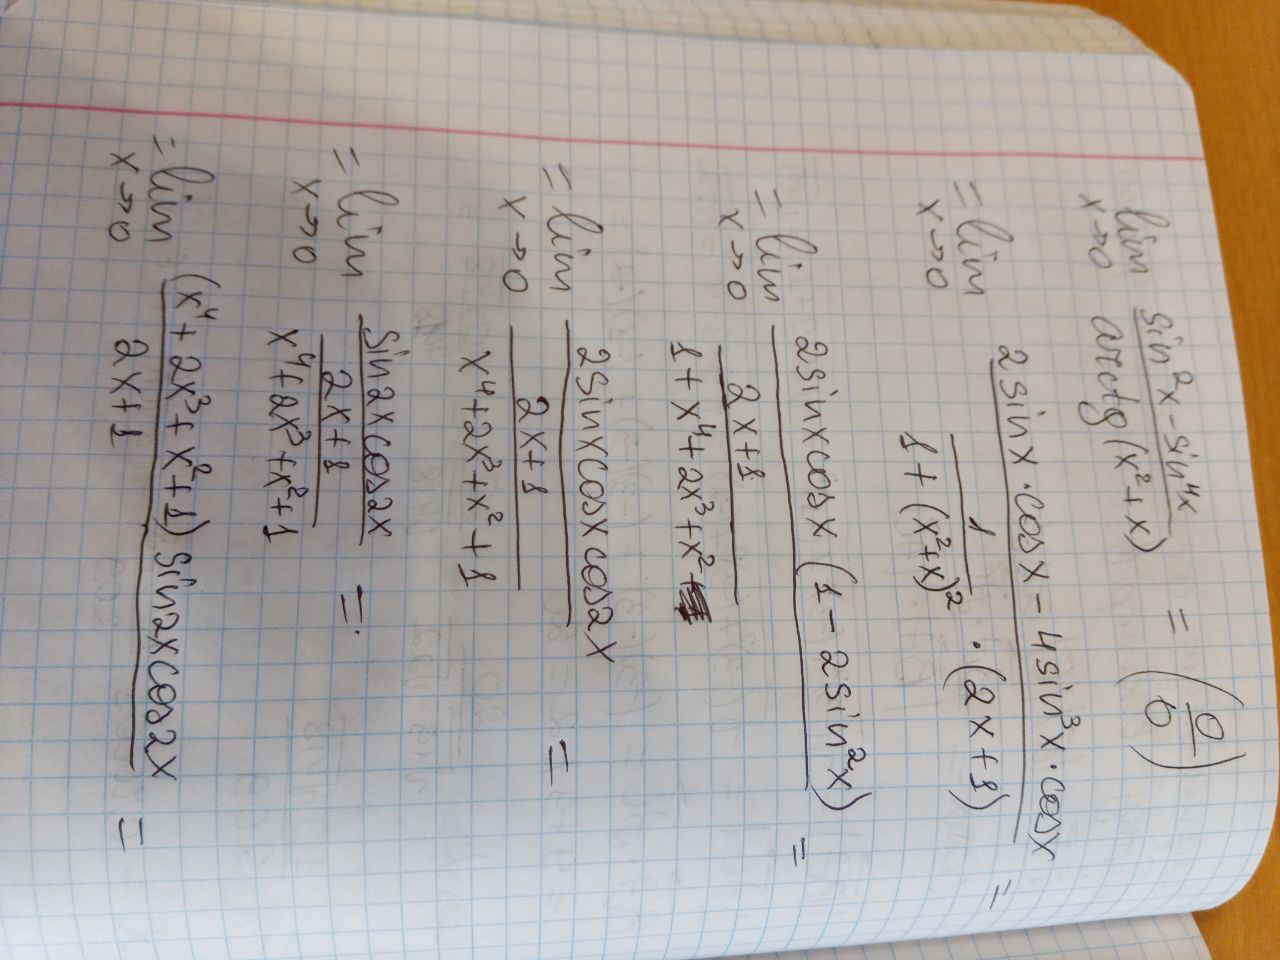 lim sin²x - sin⁴x = (0
x→0 arctg(x² + x) 0)
= lim 2 sinx · cosx - 4 sin³x · cosx =
x→0 1 · (2x+1)
1 + (x²+x)²
= lim 2sinxcosx (1 - 2sin²x) =
x→0 2x+1
1 + x⁴ + 2x³ + x²
= lim 2sinxcosxcos2x =
x→0 2x+1
x⁴+2x³+x²+1
= lim sin2xcos2x =
x→0 2x+1
x⁴+2x³+x²+1
= lim (x⁴ + 2x³ + x² + 1) sin2xcos2x =
x→0 2x+1